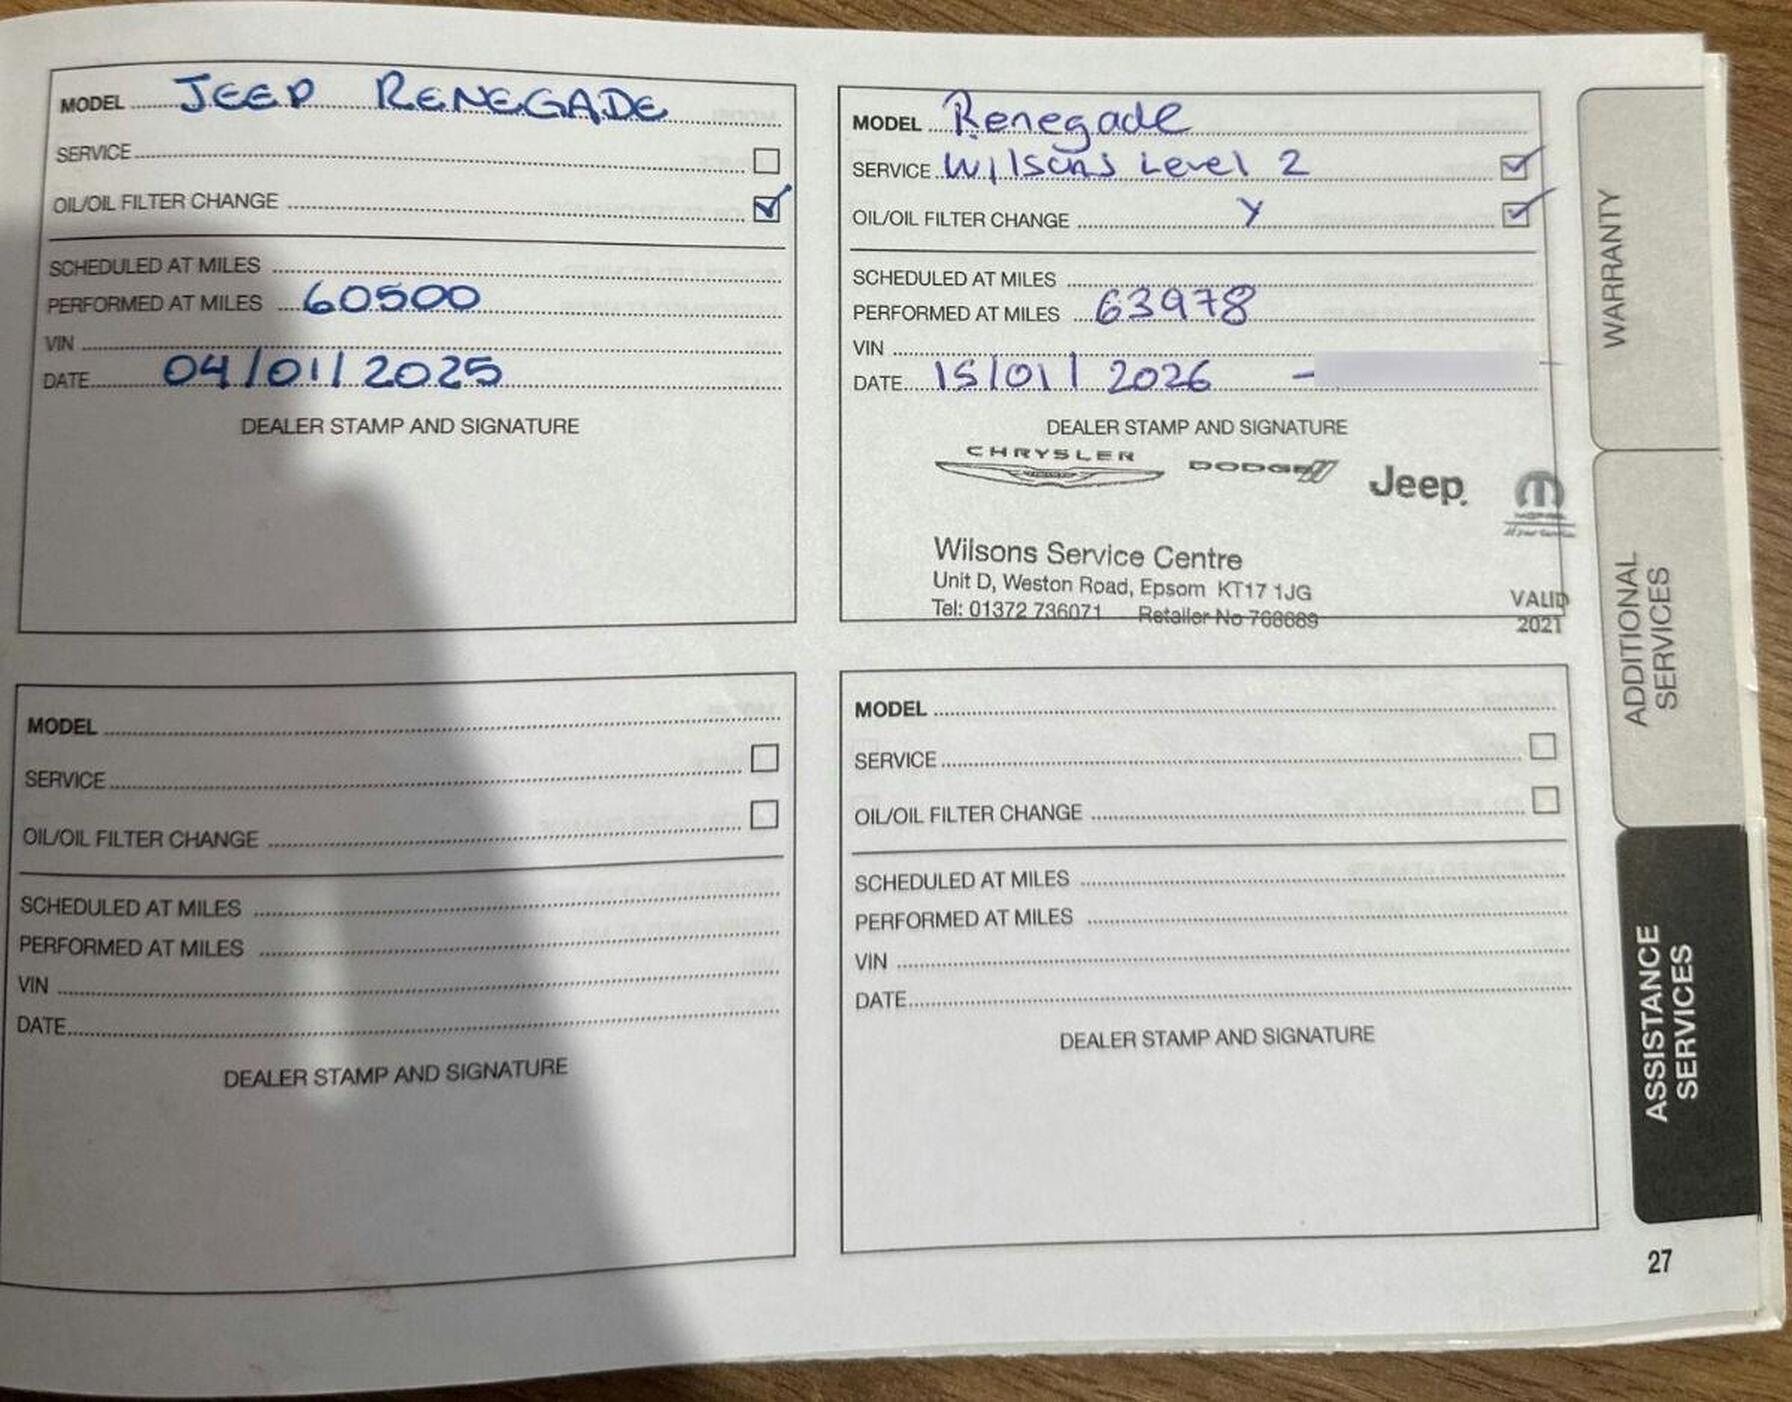 MODEL JEEP RENEGADE
SERVICE
OIL/OIL FILTER CHANGE
SCHEDULED AT MILES
PERFORMED AT MILES 60500
VIN
DATE 04/01/2025
DEALER STAMP AND SIGNATURE
MODEL Renegade
SERVICE Wilsons Level 2
OIL/OIL FILTER CHANGE Y
SCHEDULED AT MILES
PERFORMED AT MILES 63978
VIN
DATE 15/01/2026 -
DEALER STAMP AND SIGNATURE
CHRYSLER DODGE Jeep
Wilsons Service Centre
Unit D, Weston Road, Epsom KT17 1JG
Tel: 01372 736071 Retailer No
VALID
2021
MODEL
SERVICE
OIL/OIL FILTER CHANGE
SCHEDULED AT MILES
PERFORMED AT MILES
VIN
DATE
DEALER STAMP AND SIGNATURE
MODEL
SERVICE
OIL/OIL FILTER CHANGE
SCHEDULED AT MILES
PERFORMED AT MILES
VIN
DATE
DEALER STAMP AND SIGNATURE
WARRANTY
ADDITIONAL
SERVICES
ASSISTANCE
SERVICES
27